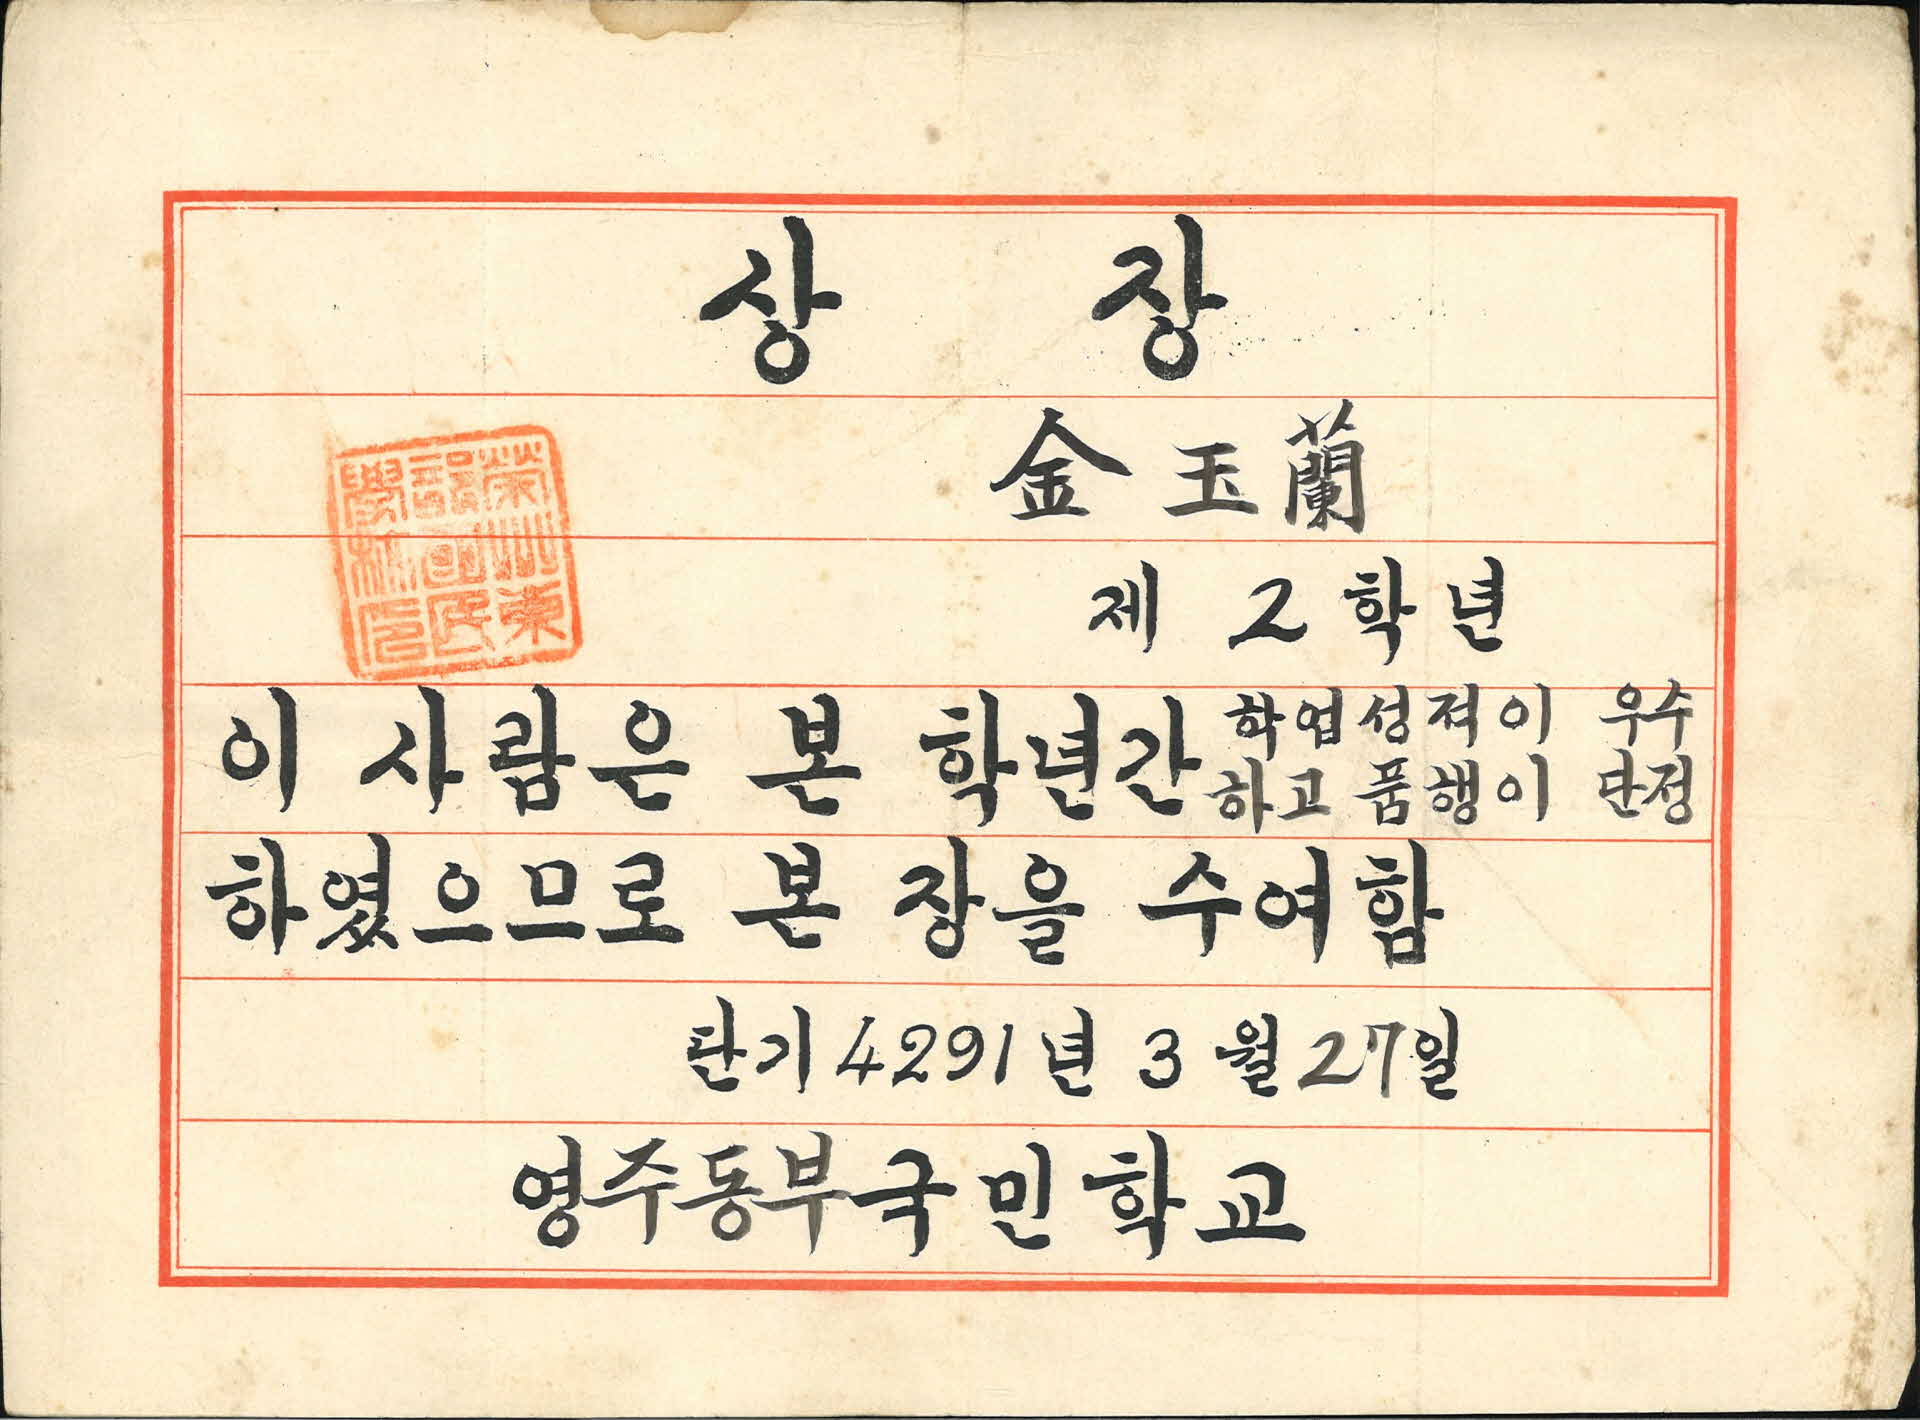 상 장
金玉蘭
제 2 학년
이 사람은 본 학년간 학업성적이 우수
하고 품행이 단정
하였으므로 본 장을 수여함
단기 4291년 3월 27일
영주동부국민학교
榮州東
部國民
學校印